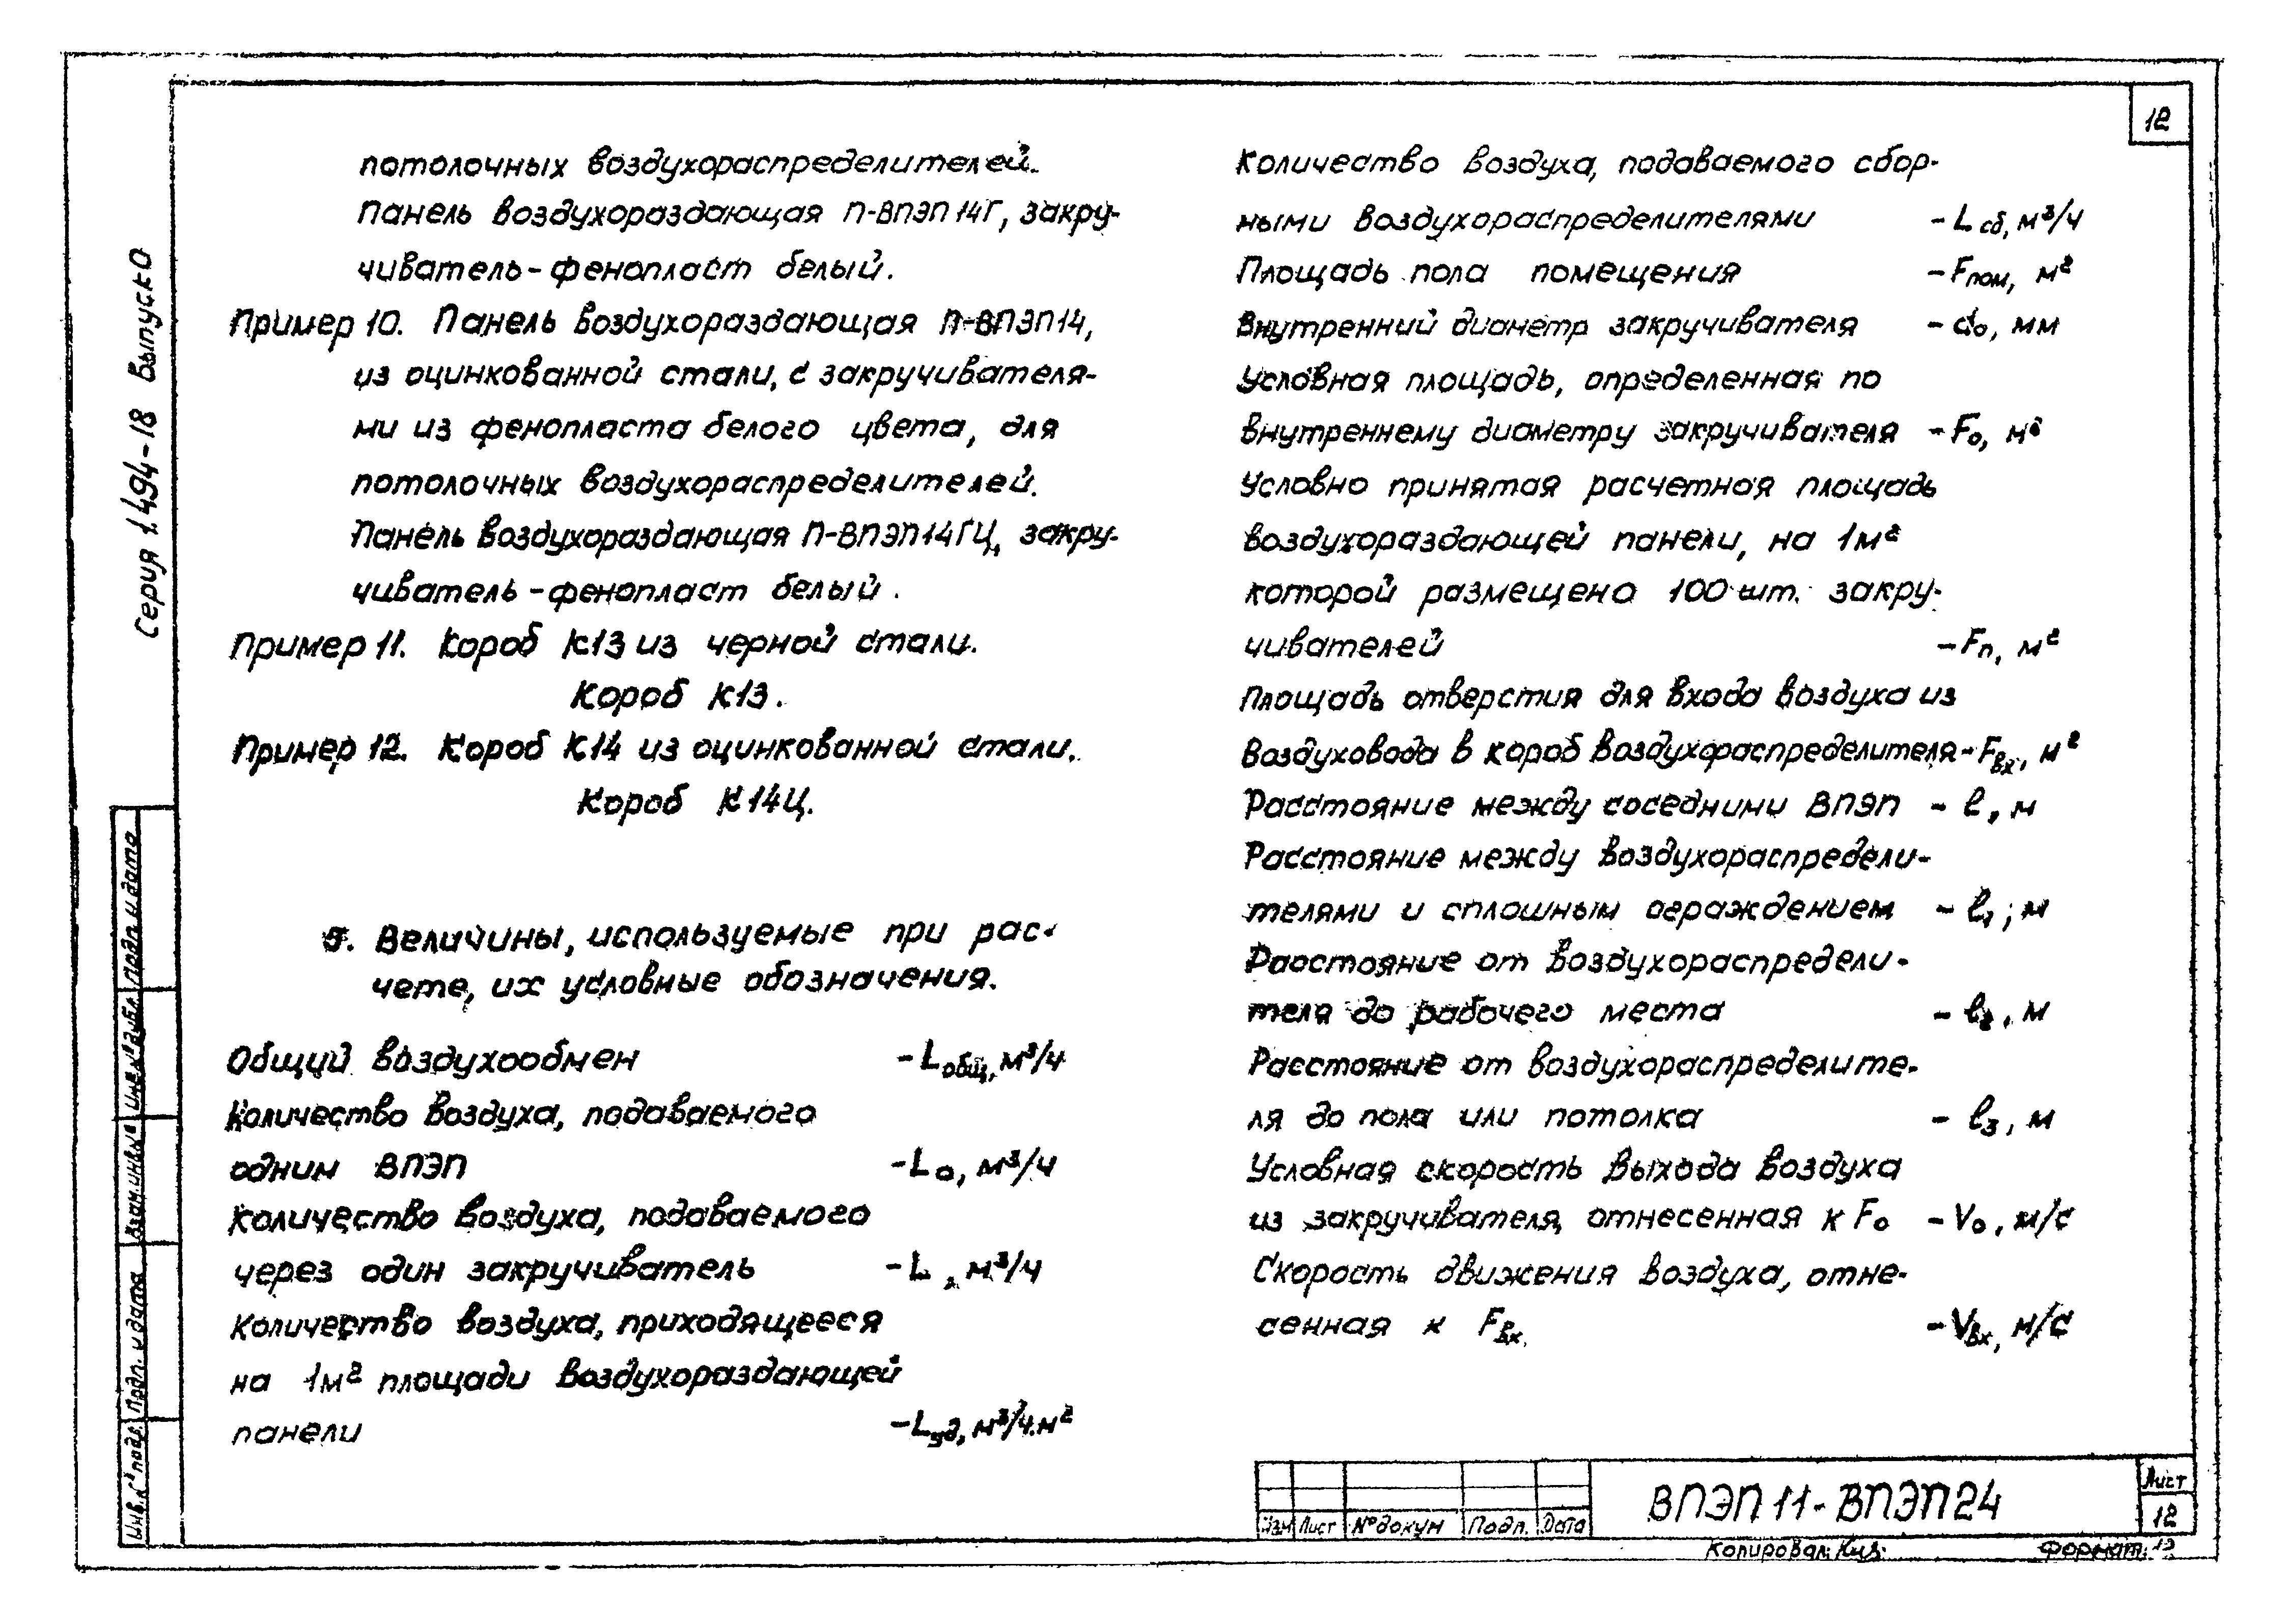 12
потолочных воздухораспределителей.
Панель воздухораздающая П-ВПЭП14Г, закру-
чиватель-фенопласт белый.
Пример 10. Панель воздухораздающая П-ВПЭП14,
из оцинкованной стали, с закручивателя-
ми из фенопласта белого цвета, для
потолочных воздухораспределителей.
Панель воздухораздающая П-ВПЭП14ГЦ, закру-
чиватель-фенопласт белый.
Пример 11. Короб К13 из черной стали.
Короб К13.
Пример 12. Короб К14 из оцинкованной стали.
Короб К14Ц.
5. Величины, используемые при рас-
чете, их условные обозначения.
Общий воздухообмен -Lобщ, м³/ч
Количество воздуха, подаваемого
одним ВПЭП -L₀, м³/ч
Количество воздуха, подаваемого
через один закручиватель -L, м³/ч
Количество воздуха, приходящееся
на 1м² площади воздухораздающей
панели -Lуд, м³/ч.м²
Количество воздуха, подаваемого сбор-
ными воздухораспределителями -Lсб, м³/ч
Площадь пола помещения -Fпом, м²
Внутренний диаметр закручивателя -d₀, мм
Условная площадь, определенная по
внутреннему диаметру закручивателя -F₀, м²
Условно принятая расчетная площадь
воздухораздающей панели, на 1м²
которой размещено 100 шт. закру-
чивателей -Fп, м²
Площадь отверстия для входа воздуха из
воздуховода в короб воздухораспределителя -Fвх, м²
Расстояние между соседними ВПЭП - l, м
Расстояние между воздухораспредели-
телями и сплошным ограждением - l₁; м
Расстояние от воздухораспредели-
теля до рабочего места - l₂, м
Расстояние от воздухораспределите-
ля до пола или потолка - l₃, м
Условная скорость выхода воздуха
из закручивателя, отнесенная к F₀ -V₀, м/с
Скорость движения воздуха, отне-
сенная к Fвх. -Vвх, м/с
Серия 1.494-18 Выпуск 0
Инв.№ подл. Подп. и дата Взам.инв.№ Инв.№ дубл. Подп. и дата
Изм Лист № докум Подп. Дата
ВПЭП 11-ВПЭП24
Лист
12
Копировал: Формат: 12